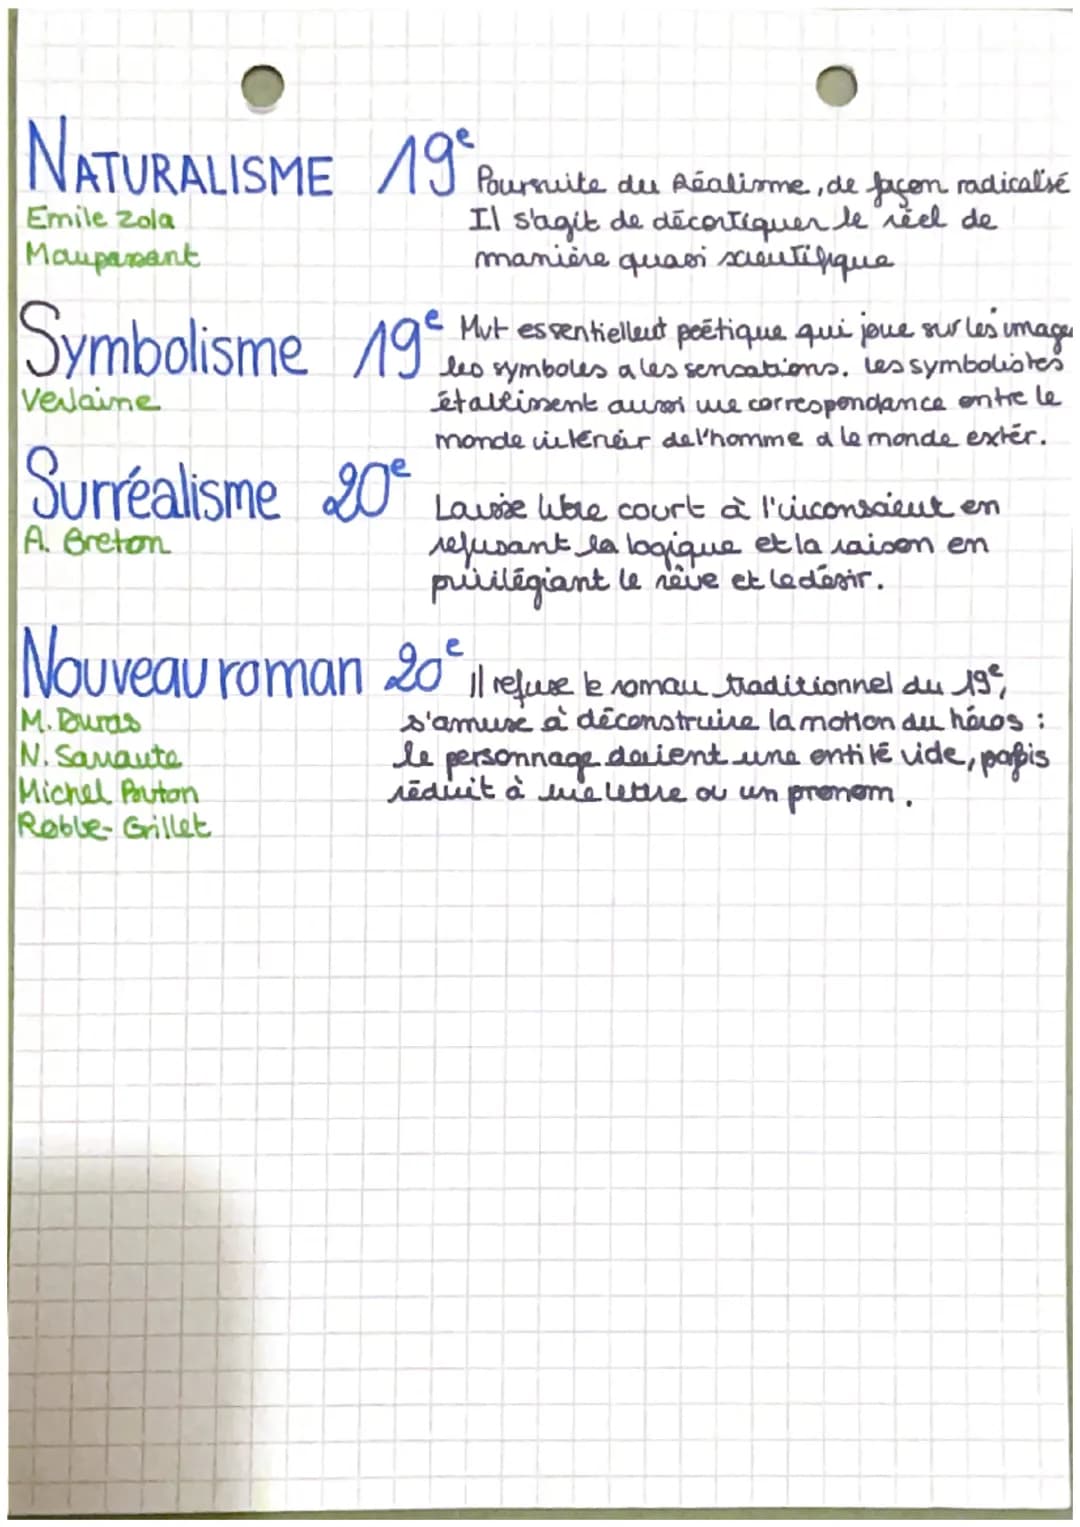 NATURALISME 19e Poursuite du Réalisme, de façon radicalisé
Emile Zola Il s'agit de décortiquer le réel de
Maupassant manière quasi scientifique
Symbolisme 19e Mvt essentiellemt poétique qui joue sur les image
les symboles & les sensations. Les symbolistes
Verlaine établissent aussi une correspondance entre le
monde intérieur de l'homme & le monde extér.
Surréalisme 20e Laisse libre court à l'inconscient en
A. Breton refusant la logique et la raison en
privilégiant le rêve et le désir.
Nouveau roman 20e Il refuse le roman traditionnel du 19e,
M. Duras s'amuse à déconstruire la notion du héros :
N. Sarraute le personnage devient une entité vide, parfois
Michel Bouton réduit à une lettre ou un prénom.
Robbe-Grillet